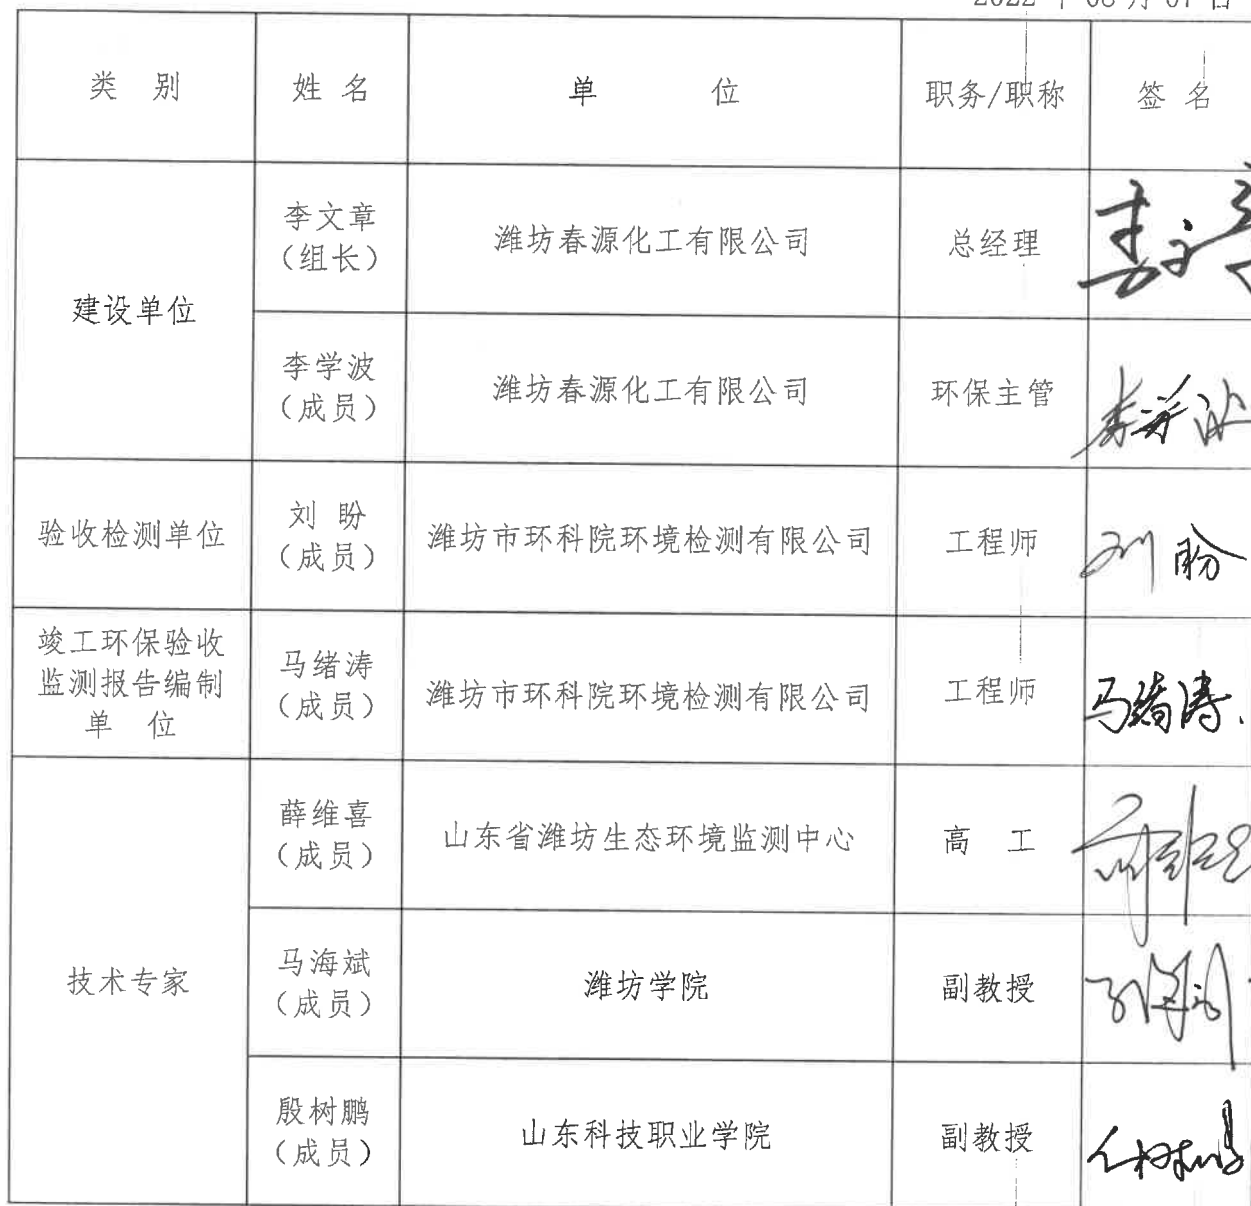 类 别 姓 名 单 位 职务/职称 签 名
建设单位
李文章
（组长）
潍坊春源化工有限公司
总经理
李学波
（成员）
潍坊春源化工有限公司
环保主管
李学波
验收检测单位
刘 盼
（成员）
潍坊市环科院环境检测有限公司
工程师
刘盼
竣工环保验收
监测报告编制
单 位
马绪涛
（成员）
潍坊市环科院环境检测有限公司
工程师
马绪涛
技术专家
薛维喜
（成员）
山东省潍坊生态环境监测中心
高 工
马海斌
（成员）
潍坊学院
副教授
殷树鹏
（成员）
山东科技职业学院
副教授